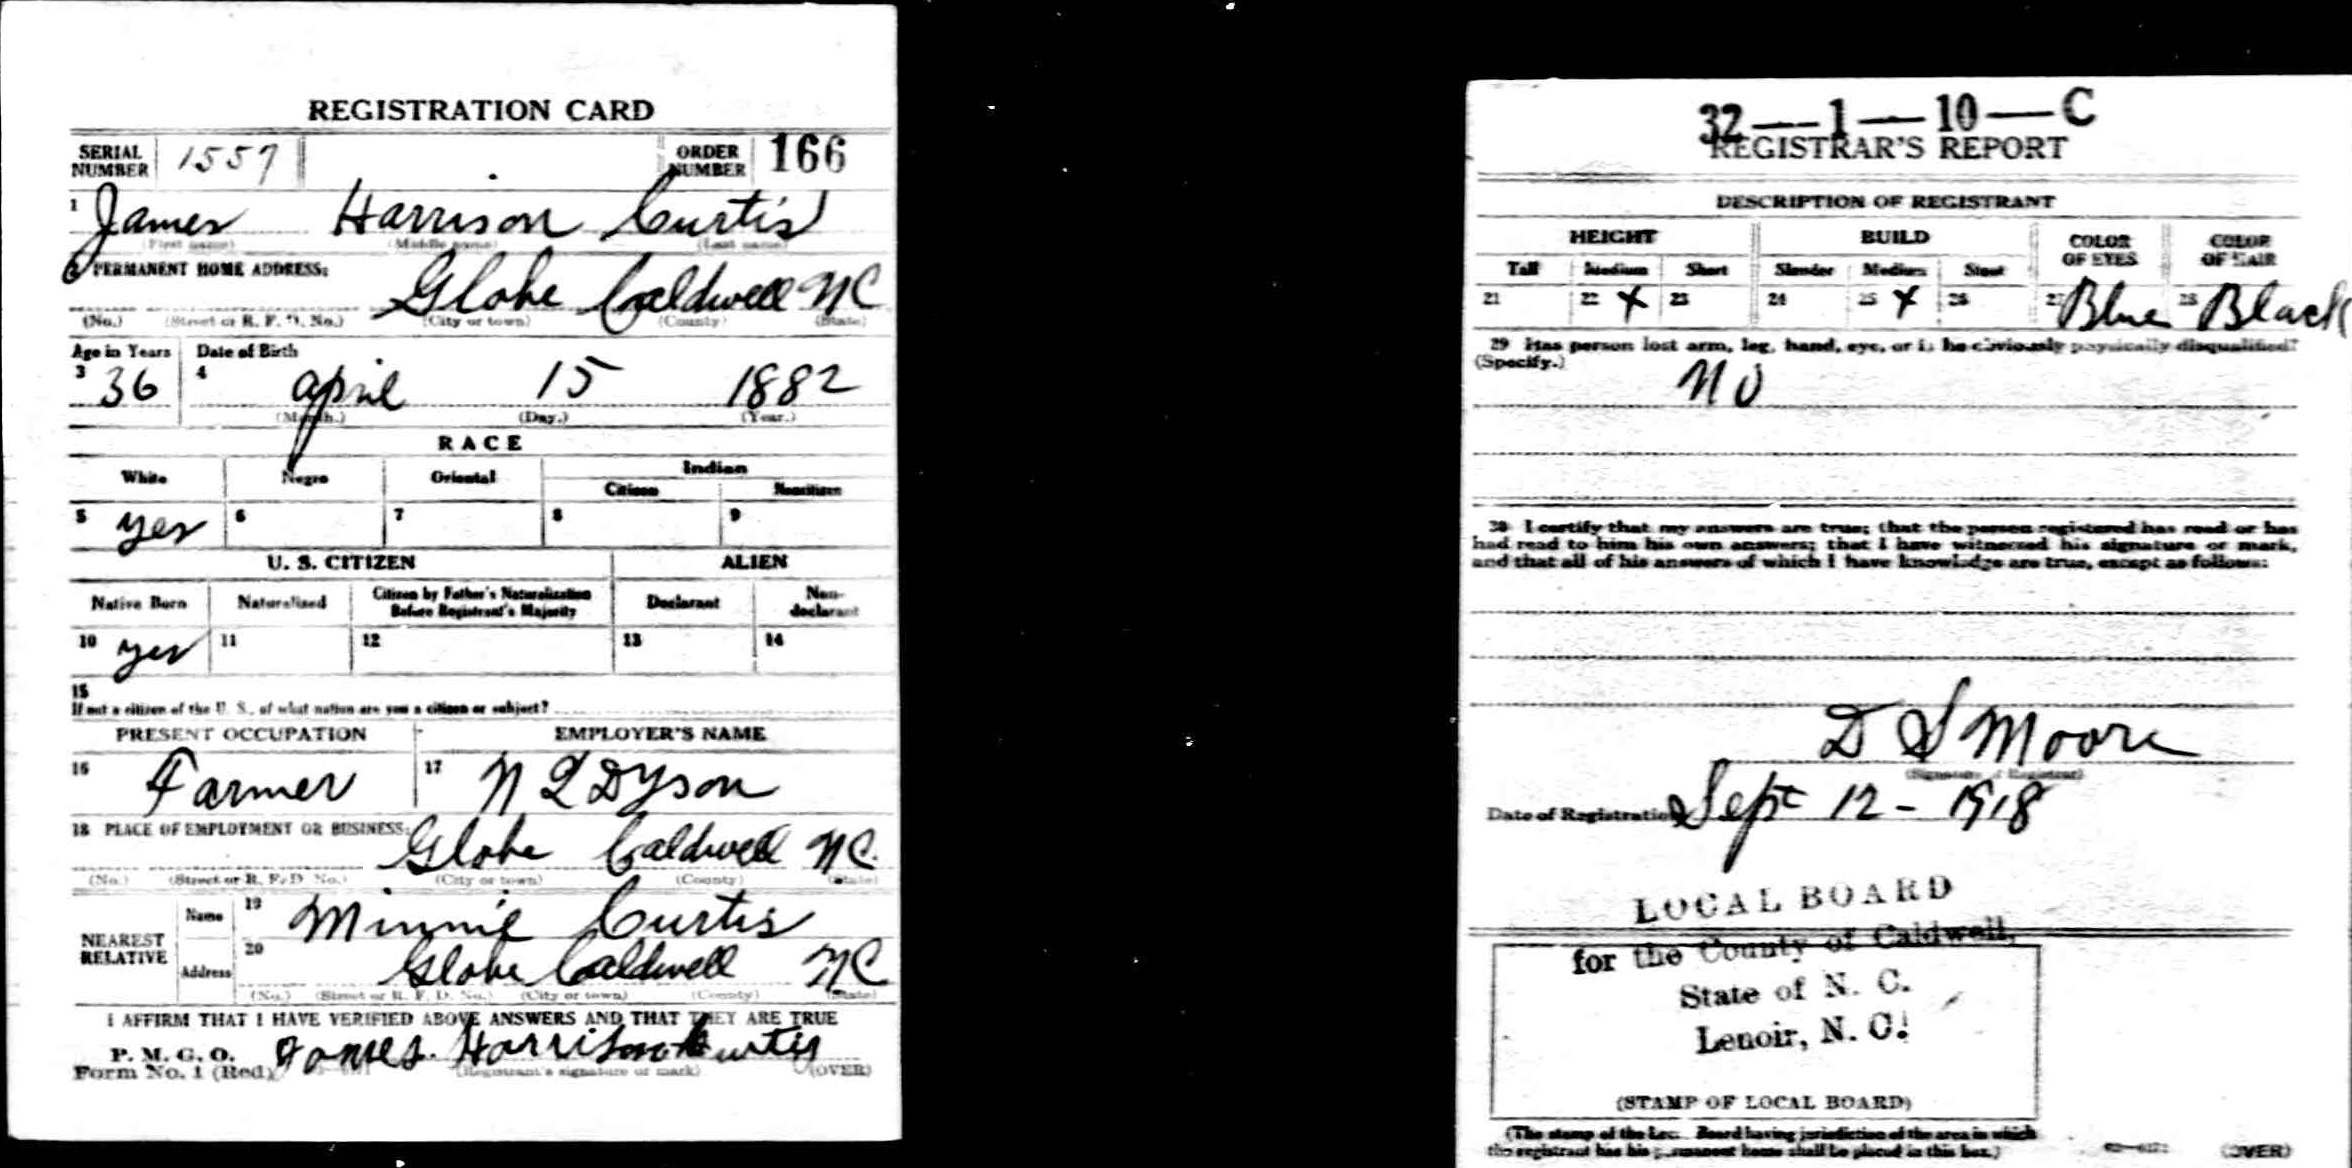 REGISTRATION CARD
SERIAL NUMBER 1557 ORDER NUMBER 166
1 James Harrison Curtis
(First name) (Middle name) (Last name)
2 PERMANENT HOME ADDRESS:
Globe Caldwell NC
(No.) (Street or R. F. D. No.) (City or town) (County) (State)
Age in Years Date of Birth
3 36 4 April 15 1882
(Month.) (Day.) (Year.)
RACE
White Negro Oriental Indian
Citizen Noncitizen
5 yes 6 7 8 9
U. S. CITIZEN ALIEN
Native Born Naturalized Citizen by Father's Naturalization Before Registrant's Majority Declarant Non-declarant
10 yes 11 12 13 14
15
If not a citizen of the U. S., of what nation are you a citizen or subject?
PRESENT OCCUPATION EMPLOYER'S NAME
16 Farmer 17 N L Dyson
18 PLACE OF EMPLOYMENT OR BUSINESS:
Globe Caldwell NC.
(No.) (Street or R. F. D. No.) (City or town) (County) (State)
NEAREST RELATIVE Name 19 Minnie Curtis
Address 20 Globe Caldwell NC
(No.) (Street or R. F. D. No.) (City or town) (County) (State)
I AFFIRM THAT I HAVE VERIFIED ABOVE ANSWERS AND THAT THEY ARE TRUE
P. M. G. O.
Form No. 1 (Red) James. Harrison Curtis
(Registrant's signature or mark) (OVER)
32—1—10—C
REGISTRAR'S REPORT
DESCRIPTION OF REGISTRANT
HEIGHT BUILD COLOR OF EYES COLOR OF HAIR
Tall Medium Short Slender Medium Stout
21 22 x 23 24 25 x 26 27 Blue 28 Black
29 Has person lost arm, leg, hand, eye, or is he obviously physically disqualified?
(Specify.)
No
30 I certify that my answers are true; that the person registered has read or has
had read to him his own answers; that I have witnessed his signature or mark,
and that all of his answers of which I have knowledge are true, except as follows:
D S Moore
(Signature of Registrar)
Date of Registration Sept 12 - 1918
LOCAL BOARD
for the County of Caldwell,
State of N. C.
Lenoir, N. C.
(STAMP OF LOCAL BOARD)
(The stamp of the Local Board having jurisdiction of the area in which
the registrant has his permanent home shall be placed in this box.)
(OVER)